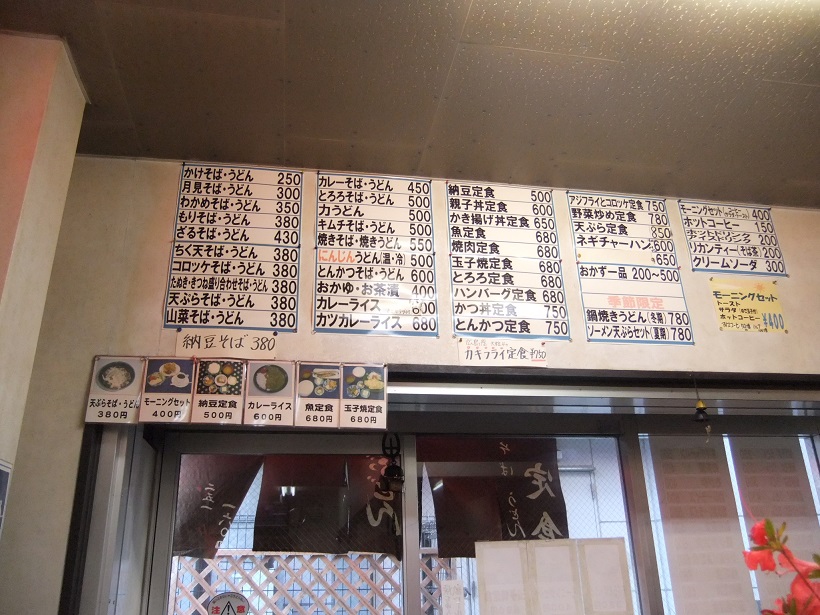 かけそば・うどん 250
月見そば・うどん 300
わかめそば・うどん 350
もりそば・うどん 380
ざるそば・うどん 430
ちく天そば・うどん 380
コロッケそば・うどん 380
たぬき・きつね盛り合わせそば・うどん 380
天ぷらそば・うどん 380
山菜そば・うどん 380
納豆そば 380
カレーそば・うどん 450
とろろそば・うどん 500
力うどん 500
キムチそば・うどん 500
焼きそば・焼きうどん 550
にんじんうどん(温・冷) 500
とんかつそば・うどん 600
おかゆ・お茶漬 400
カレーライス 600
カツカレーライス 680
納豆定食 500
親子丼定食 600
かき揚げ丼定食 650
魚定食 680
焼肉定食 680
玉子焼定食 680
とろろ定食 680
ハンバーグ定食 680
かつ丼定食 750
とんかつ定食 750
カキフライ定食 ¥750
アジフライとコロッケ定食 750
野菜炒め定食 780
天ぷら定食 850
ネギチャーハン 600
650
おかず一品 200～500
季節限定
鍋焼きうどん(冬期) 780
ソーメン天ぷらセット(夏期) 780
モーニングセット 400
ホットコーヒー 150
200
ウーロンティー そば茶 200
クリームソーダ 300
モーニングセット
トースト
サラダ
ホットコーヒー
¥400
天ぷらそば・うどん
380円
モーニングセット
400円
納豆定食
500円
カレーライス
600円
魚定食
680円
玉子焼定食
680円
そば
うどん
定食
注意